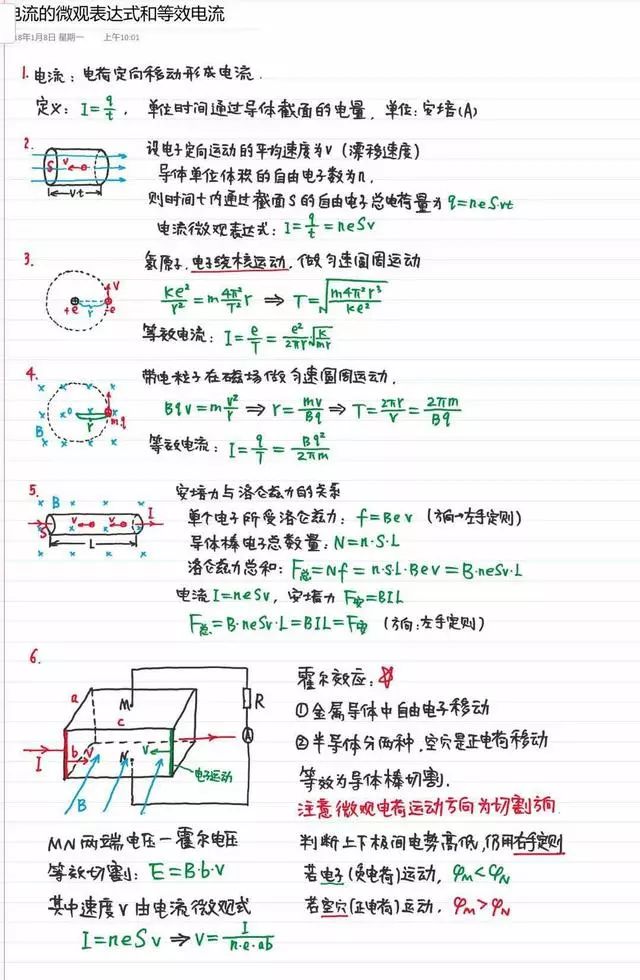 电流的微观表达式和等效电流
18年1月8日 星期一 上午10:01
1. 电流：电荷定向移动形成电流.
定义：I=q/t, 单位时间通过导体截面的电量, 单位：安培(A)
2.
S v
v·t
设电子定向运动的平均速度为v (漂移速度)
导体单位体积的自由电子数为n.
则时间t内通过截面S的自由电子总电荷量为 q=neSvt
电流微观表达式：I=q/t=neSv
3.
+e r -e v
氢原子, 电子绕核运动, 做匀速圆周运动
ke²/r²=m4π²/T² r ⇒ T=√(m4π²r³/ke²)
等效电流：I=e/T=e²/2πr √(k/mr)
4.
B o r m.q
带电粒子在磁场做匀速圆周运动,
Bqv=mv²/r ⇒ r=mv/Bq ⇒ T=2πr/v=2πm/Bq
等效电流：I=q/T=Bq²/2πm
5.
B S v v I
L
安培力与洛仑兹力的关系
单个电子所受洛仑兹力：f=Bev (方向→左手定则)
导体棒电子总数量：N=n·S·L
洛仑兹力总和：F总=Nf=n·S·L·Bev=B·neSv·L
电流I=neSv, 安培力 F安=BIL
F总=B·neSv·L=BIL=F安 (方向：左手定则)
6.
a M c b v N v I B R A
电子运动
霍尔效应：
①金属导体中自由电子移动
②半导体分两种, 空穴是正电荷移动
等效为导体棒切割.
注意微观电荷运动方向为切割方向
MN两端电压—霍尔电压
等效切割：E=B·b·v
其中速度v由电流微观式
I=neSv ⇒ v=I/n·e·ab
判断上下极间电势高低, 仍用右手定则
若电子(负电荷)运动, φM<φN
若空穴(正电荷)运动, φM>φN